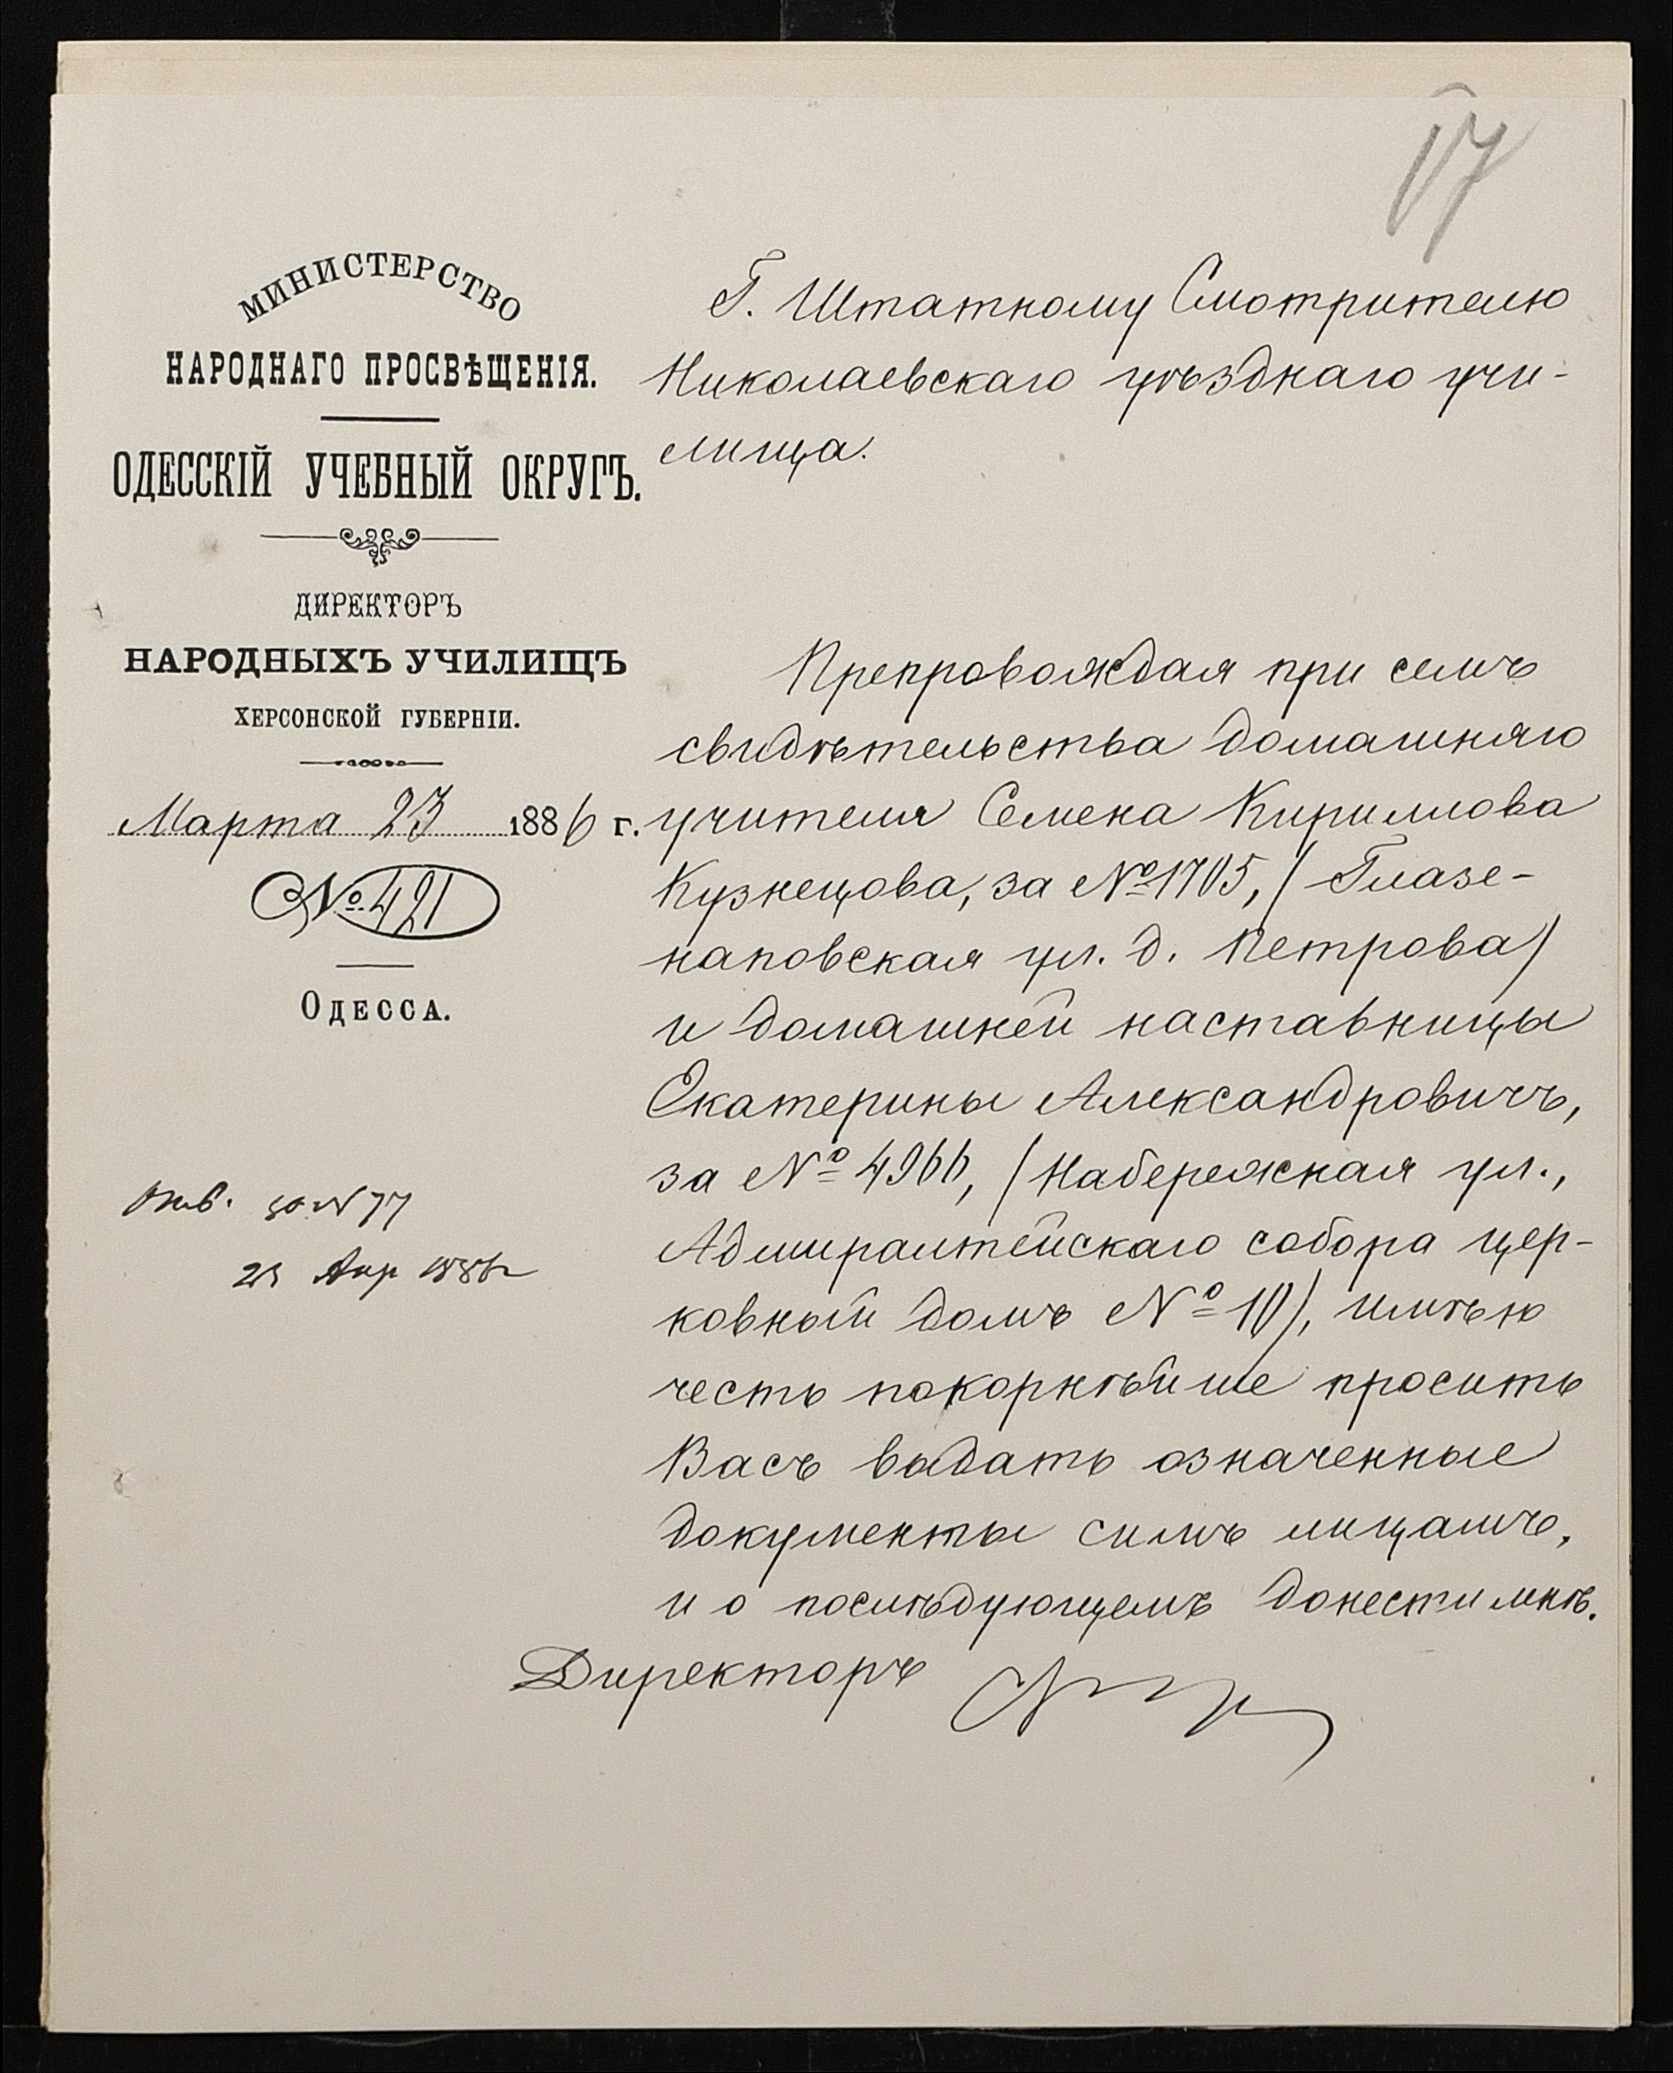 17
МИНИСТЕРСТВО
НАРОДНАГО ПРОСВѢЩЕНІЯ.
ОДЕССКІЙ УЧЕБНЫЙ ОКРУГЪ.
ДИРЕКТОРЪ
НАРОДНЫХЪ УЧИЛИЩЪ
ХЕРСОНСКОЙ ГУБЕРНІИ.
Марта 23 1886 г.
№ 421
ОДЕССА.
Отв. за № 77
23 Апр 1886 г
Г. Штатному Смотрителю
Николаевскаго уѣзднаго учи-
лища.
Препровождая при семъ
свидѣтельства домашняго
учителя Семена Кириллова
Кузнецова, за № 1705, (Глазе-
наповская ул. д. Петрова)
и домашней наставницы
Екатерины Александровичъ,
за № 4966, (Набережная ул.,
Адмиралтейскаго собора цер-
ковный домъ № 10), имѣю
честь покорнѣйше просить
Васъ выдать означенные
документы симъ лицамъ,
и о послѣдующемъ донести мнѣ.
Директоръ